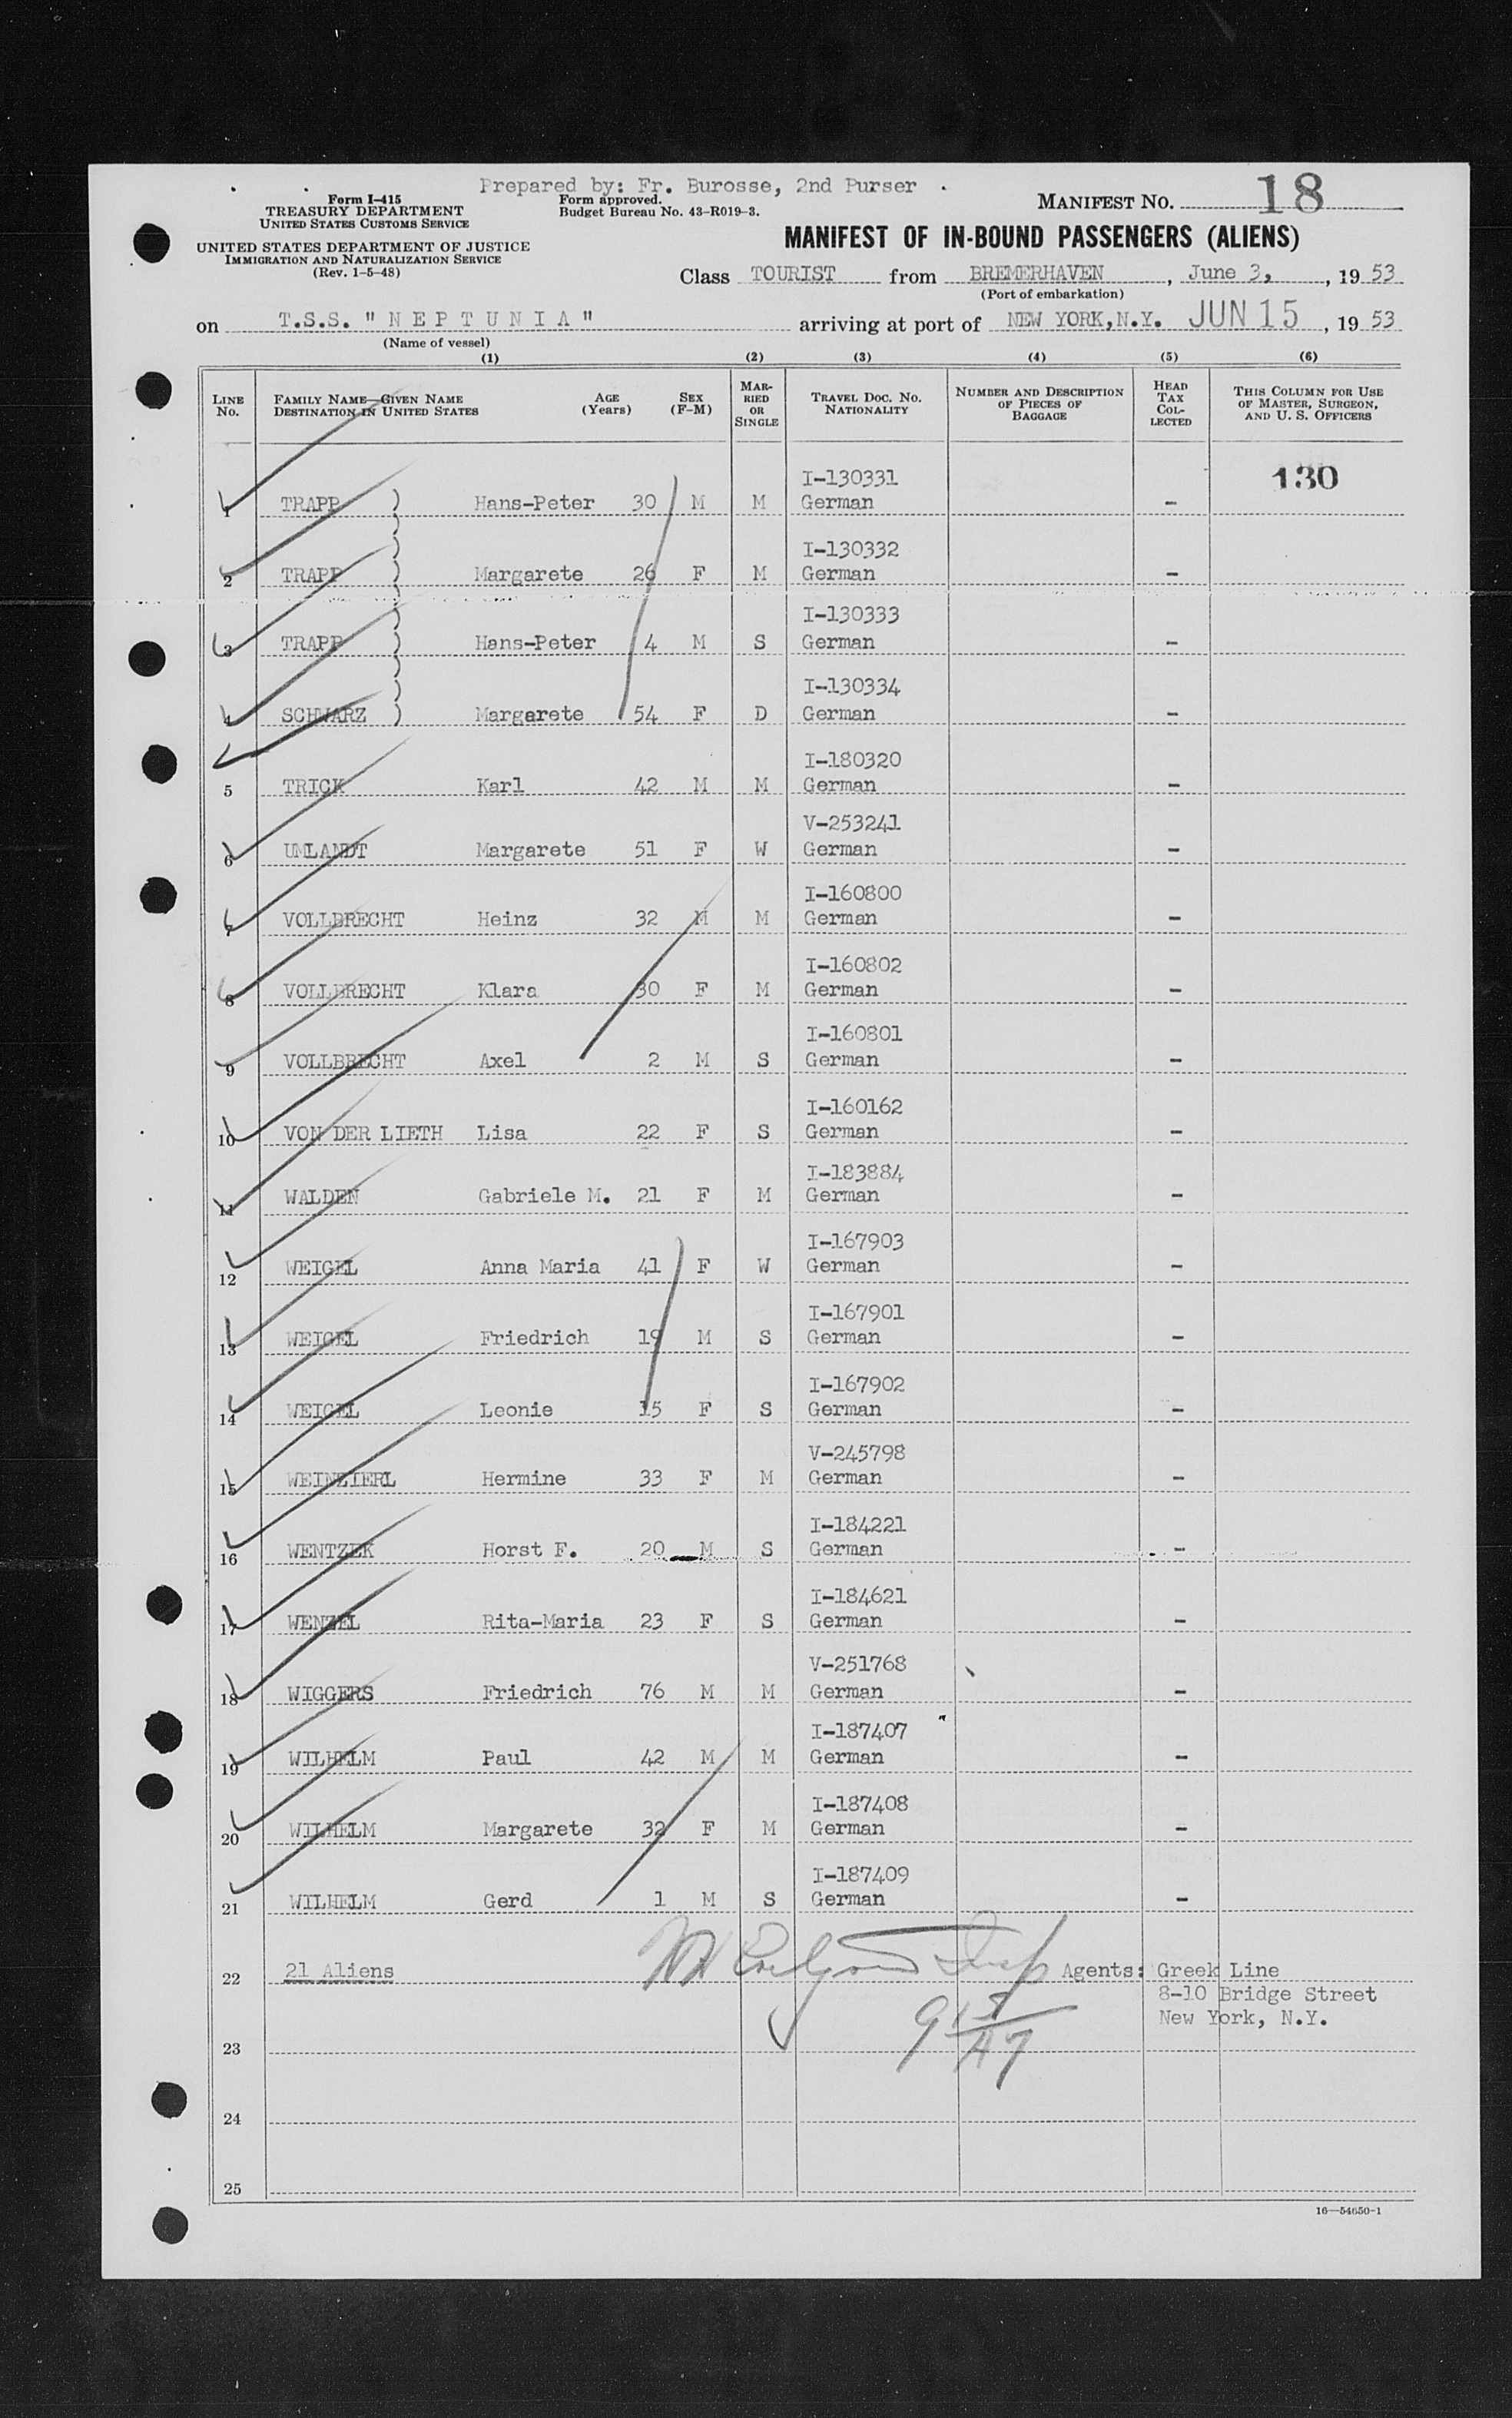 Prepared by: Fr. Burosse, 2nd Purser
Form I-415
TREASURY DEPARTMENT
UNITED STATES CUSTOMS SERVICE
Form approved.
Budget Bureau No. 43-R019-3.
MANIFEST NO. 18
UNITED STATES DEPARTMENT OF JUSTICE
IMMIGRATION AND NATURALIZATION SERVICE
(Rev. 1-5-48)
MANIFEST OF IN-BOUND PASSENGERS (ALIENS)
Class TOURIST from BREMERHAVEN, June 3, , 19 53
(Port of embarkation)
on T.S.S. " N E P T U N I A " arriving at port of NEW YORK, N.Y. JUN 15 , 19 53
(Name of vessel)
(1) (2) (3) (4) (5) (6)
LINE No. FAMILY NAME—GIVEN NAME DESTINATION IN UNITED STATES AGE (Years) SEX (F-M) MARRIED OR SINGLE TRAVEL DOC. NO. NATIONALITY NUMBER AND DESCRIPTION OF PIECES OF BAGGAGE HEAD TAX COLLECTED THIS COLUMN FOR USE OF MASTER, SURGEON, AND U. S. OFFICERS
I-130331 130
1 TRAPP ) Hans-Peter 30 M M German -
I-130332
2 TRAPP ) Margarete 26 F M German -
I-130333
3 TRAPP ) Hans-Peter 4 M S German -
I-130334
4 SCHWARZ ) Margarete 54 F D German -
I-180320
5 TRICK Karl 42 M M German -
V-253241
6 UMLANDT Margarete 51 F W German -
I-160800
7 VOLLBRECHT Heinz 32 M M German -
I-160802
8 VOLLBRECHT Klara 30 F M German -
I-160801
9 VOLLBRECHT Axel 2 M S German -
I-160162
10 VON DER LIETH Lisa 22 F S German -
I-183884
11 WALDEN Gabriele M. 21 F M German -
I-167903
12 WEIGEL Anna Maria 41 F W German -
I-167901
13 WEIGEL Friedrich 19 M S German -
I-167902
14 WEIGEL Leonie 15 F S German -
V-245798
15 WEINZIERL Hermine 33 F M German -
I-184221
16 WENTZEK Horst F. 20 M S German -
I-184621
17 WENZEL Rita-Maria 23 F S German -
V-251768
18 WIGGERS Friedrich 76 M M German -
I-187407
19 WILHELM Paul 42 M M German -
I-187408
20 WILHELM Margarete 32 F M German -
I-187409
21 WILHELM Gerd 1 M S German -
22 21 Aliens Insp Agents: Greek Line
8-10 Bridge Street
New York, N.Y.
23
24
25
16—54650-1